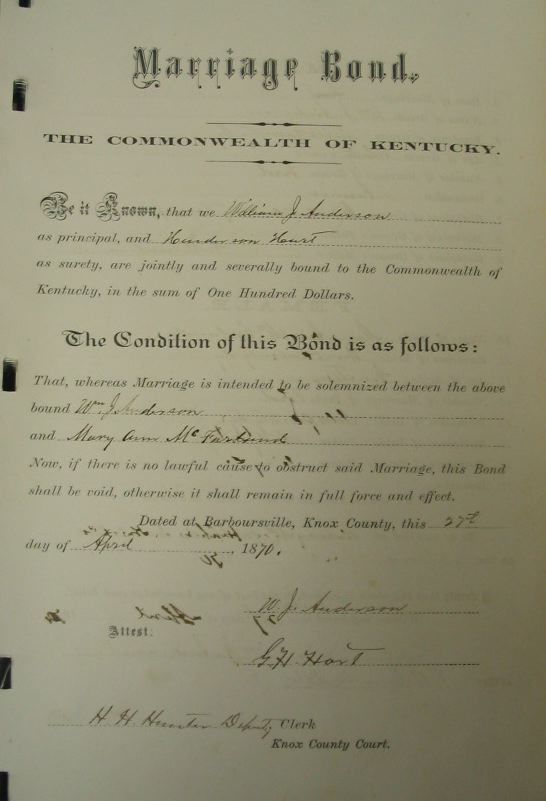 Marriage Bond,
THE COMMONWEALTH OF KENTUCKY.
Be it Known, that we William J. Anderson
as principal, and Henderson Hart
as surety, are jointly and severally bound to the Commonwealth of
Kentucky, in the sum of One Hundred Dollars.
The Condition of this Bond is as follows:
That, whereas Marriage is intended to be solemnized between the above
bound Wm. J. Anderson
and Mary Ann McFarland
Now, if there is no lawful cause to obstruct said Marriage, this Bond
shall be void, otherwise it shall remain in full force and effect.
Dated at Barboursville, Knox County, this 27th
day of April, 1870.
W. J. Anderson
Attest:
G H Hart
H. H. Hunter Deputy Clerk
Knox County Court.